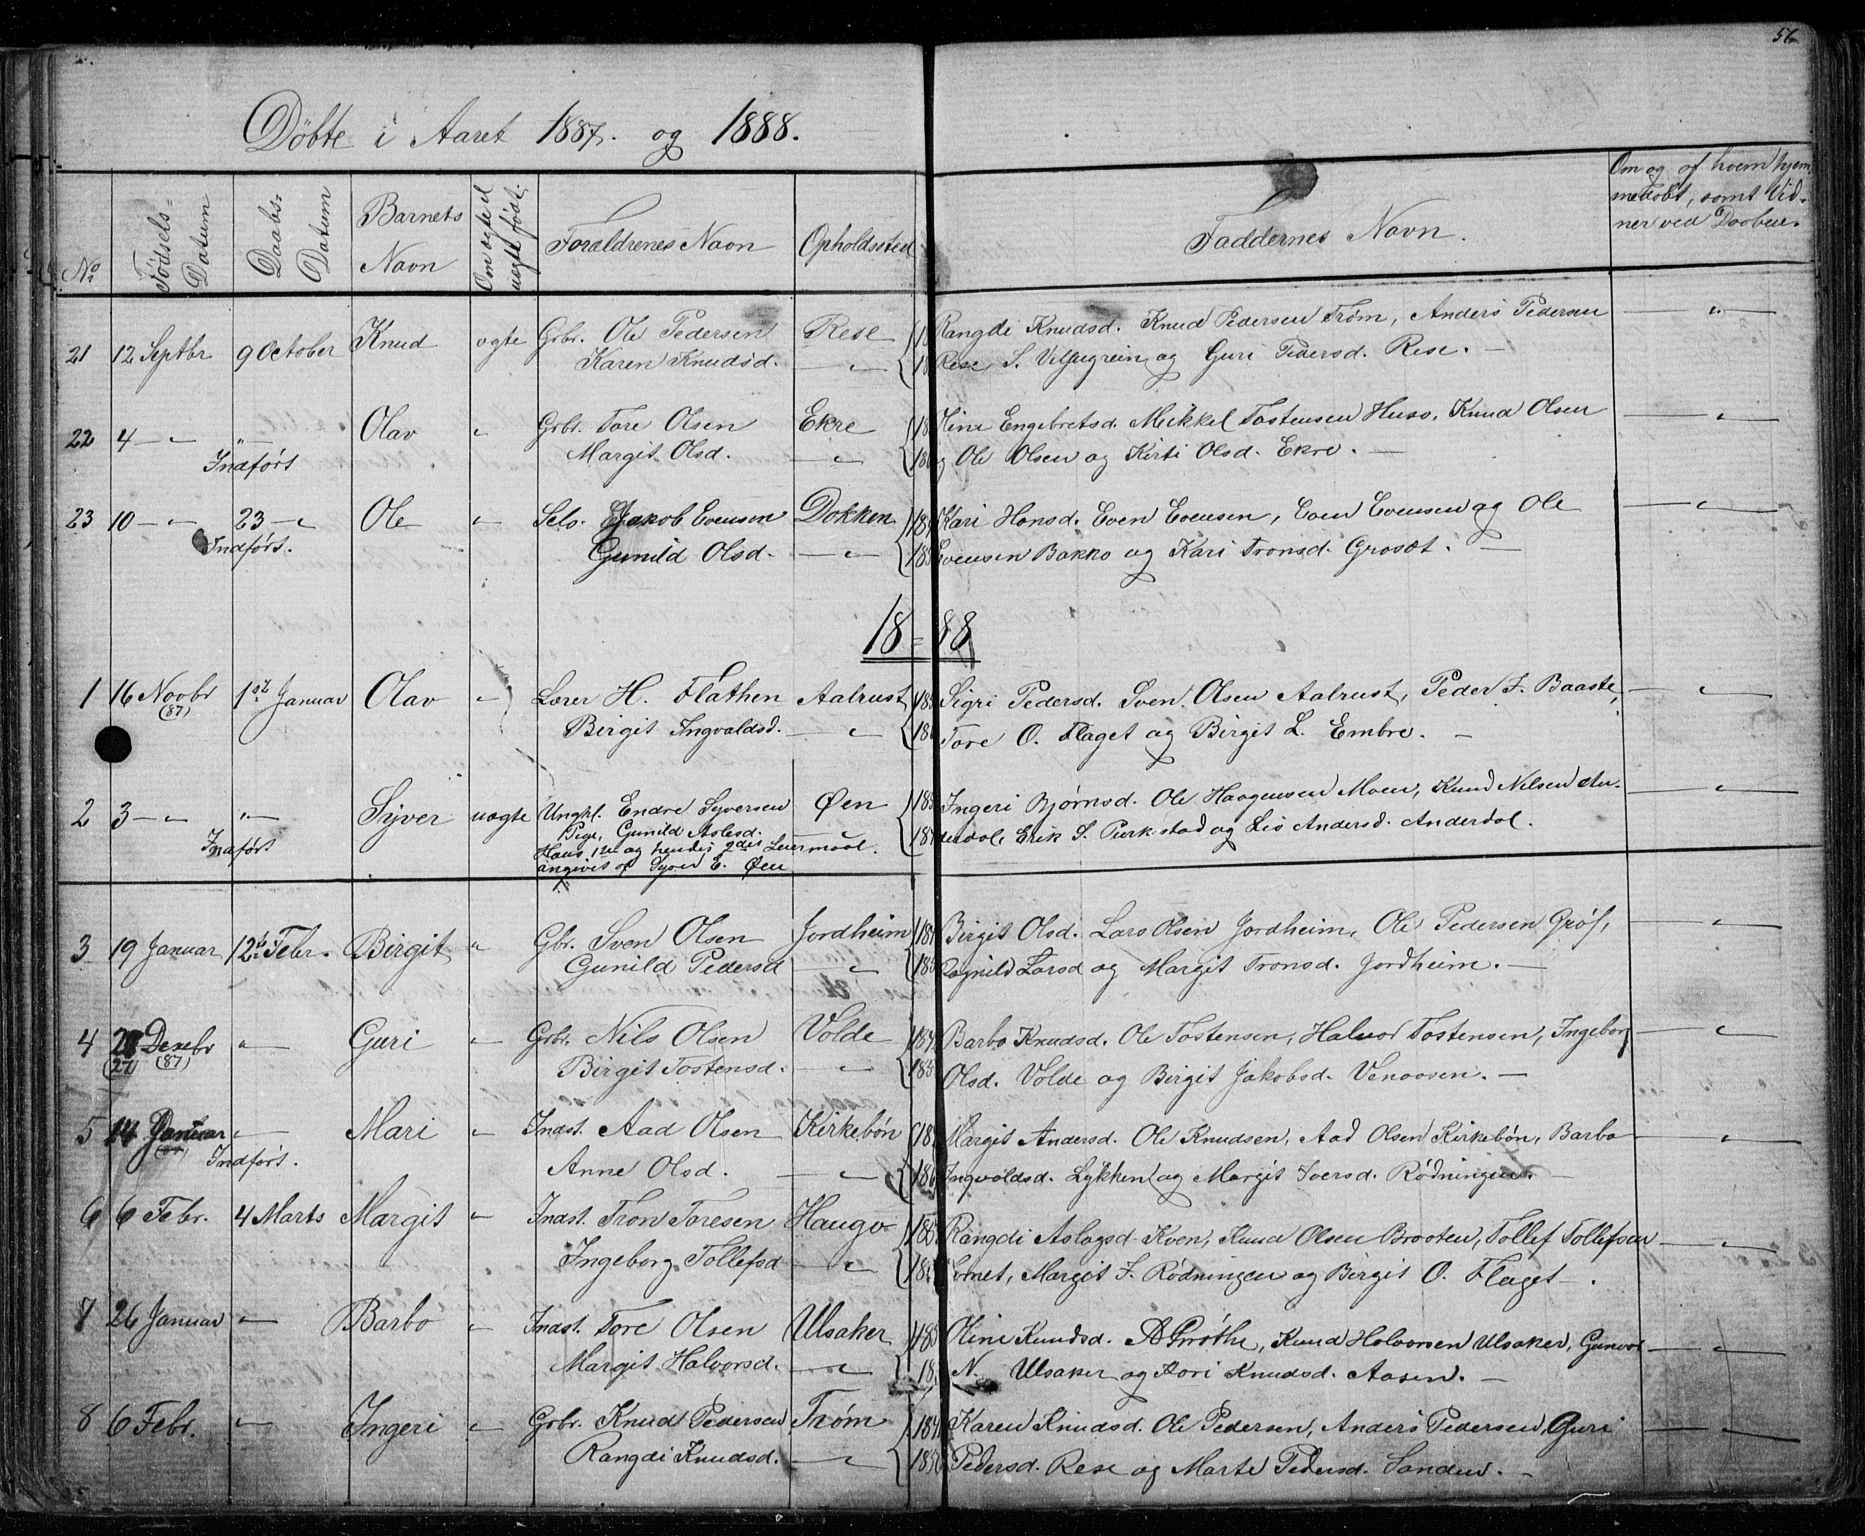 56
Døbte i Aaret 1887. og 1888.
No. Fødsels= Datum Daabs= Datum Barnets Navn Om ægte el uægte født. Forældrenes Navn Opholdssted Faddernes Navn. Om og af hvem hjem medøbt, samt Vid= ner ved Daaben.
21 12 Septbr 9 October Knud ægte Grbr. Ole Pedersen Rese Rangdi Knudsd. Knud Pedersen Trøm, Anders Pedersen
Karen Knudsd. Rese S. og Guri Pedersd. Rese. —
22 4 — " — " — Olav " Grbr. Tore Olsen Ekre Stine Engebretsd. Mikkel Tostensen Huso, Knud Olsen
Indført Margit Olsd. — " — og Ole Olsen og Kirti Olsd. Ekre. —
23 10 — " 23 — " Ole " Selv. Jakob Evensen Dokken Kari Hansd. Even Evensen, Even Evensen og Ole
Indført. Gunild Olsd. — " — Evensen Bakko og Kari Tronsd. Grosæt. —
18=88
1 16 Novbr (87) 1st Januar Olav " Lærer H. Flathen Aalrust Sigri Pedersd. Sven Olsen Aalrust, Peder F. Baaste,
Birgit Ingvaldsd. — " — Tore O. Flaget og Birgit L. Embre. —
2 3 — " — " — Syver uægte Ungk. Endre Syversen Øen Ingeri Bjørnsd. Ole Haagensen Moen, Knud Nilsen An-
Indført Pige, Gunild Aslesd. — derdal, Erik S. og Liv Andersd. Anderdal.
Hans 1ste og hendes 2det Leiermaal.
angivet af Syver E. Øen
3 19 Januar 12te Febr. Birgit " Gbr. Sven Olsen Jordheim Birgit Olsd. Lars Olsen Jordheim, Ole Pedersen Grøf,
Gunild Pedersd — " — Ragnild Larsd og Margit Tronsd. Jordheim. —
4 28 Decebr " Guri " Grbr. Nils Olsen Volde Barbo Knudsd. Ole Tostensen, Halvor Tostensen, Ingeborg
(27) (87) Birgit Tostensd. — " — Olsd. Volde og Birgit Jakobsd. Venaasen. —
5 14 Januar " Mari " Indst. Aad Olsen Kirkebøn Margit Andersd. Ole Knudsen, Aad Olsen Kirkebøn, Barbo
Indført. Anne Olsd. — " — Ingvoldsd. Lykken og Margit Iversd. Rødningen. —
6 6 Febr. 4 Marts Margit " Indst. Tron Toresen Haugo Rangdi Aslagsd Kven, Knud Olsen Braaten, Tollef Tollefsen
Ingeborg Tollefsd — " — Margit F. Rødningen og Birgit O. Flaget —.
7 26 Januar " Barbo " Indst. Tore Olsen Ulsaker Stine Knudsd. A Grøthe, Knud Halvorsen Ulsaker, Gunvor
Margit Halvorsd. — " — N. Ulsaker og Kari Knudsd. Aasen. —
8 6 Febr. " Ingeri " Grbr. Knud Pedersen Trøm Karen Knudsd. Ole Pedersen, Anders Pedersen, Guri
Rangdi Knudsd. — " — Pedersd. Rese og Marte Pedersd. Sanden. —